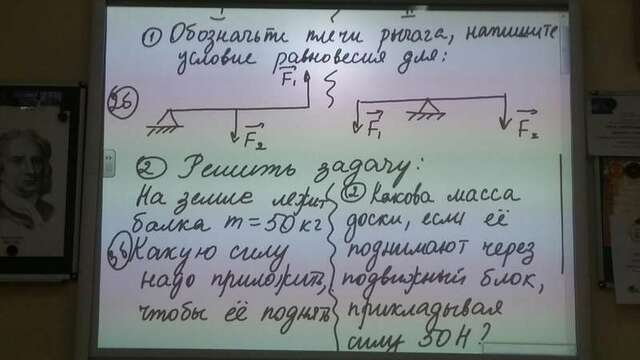 ① Обозначьти плечи рычага, напишите
условие равновесия для:
F₁
F₂
F₁
F₂
② Решить задачу:
На земле лежит
балка m = 50 кг
Какую силу
надо приложить,
чтобы её поднять
② Какова масса
доски, если её
поднимают через
подвижный блок,
прикладывая
силу 50 Н?